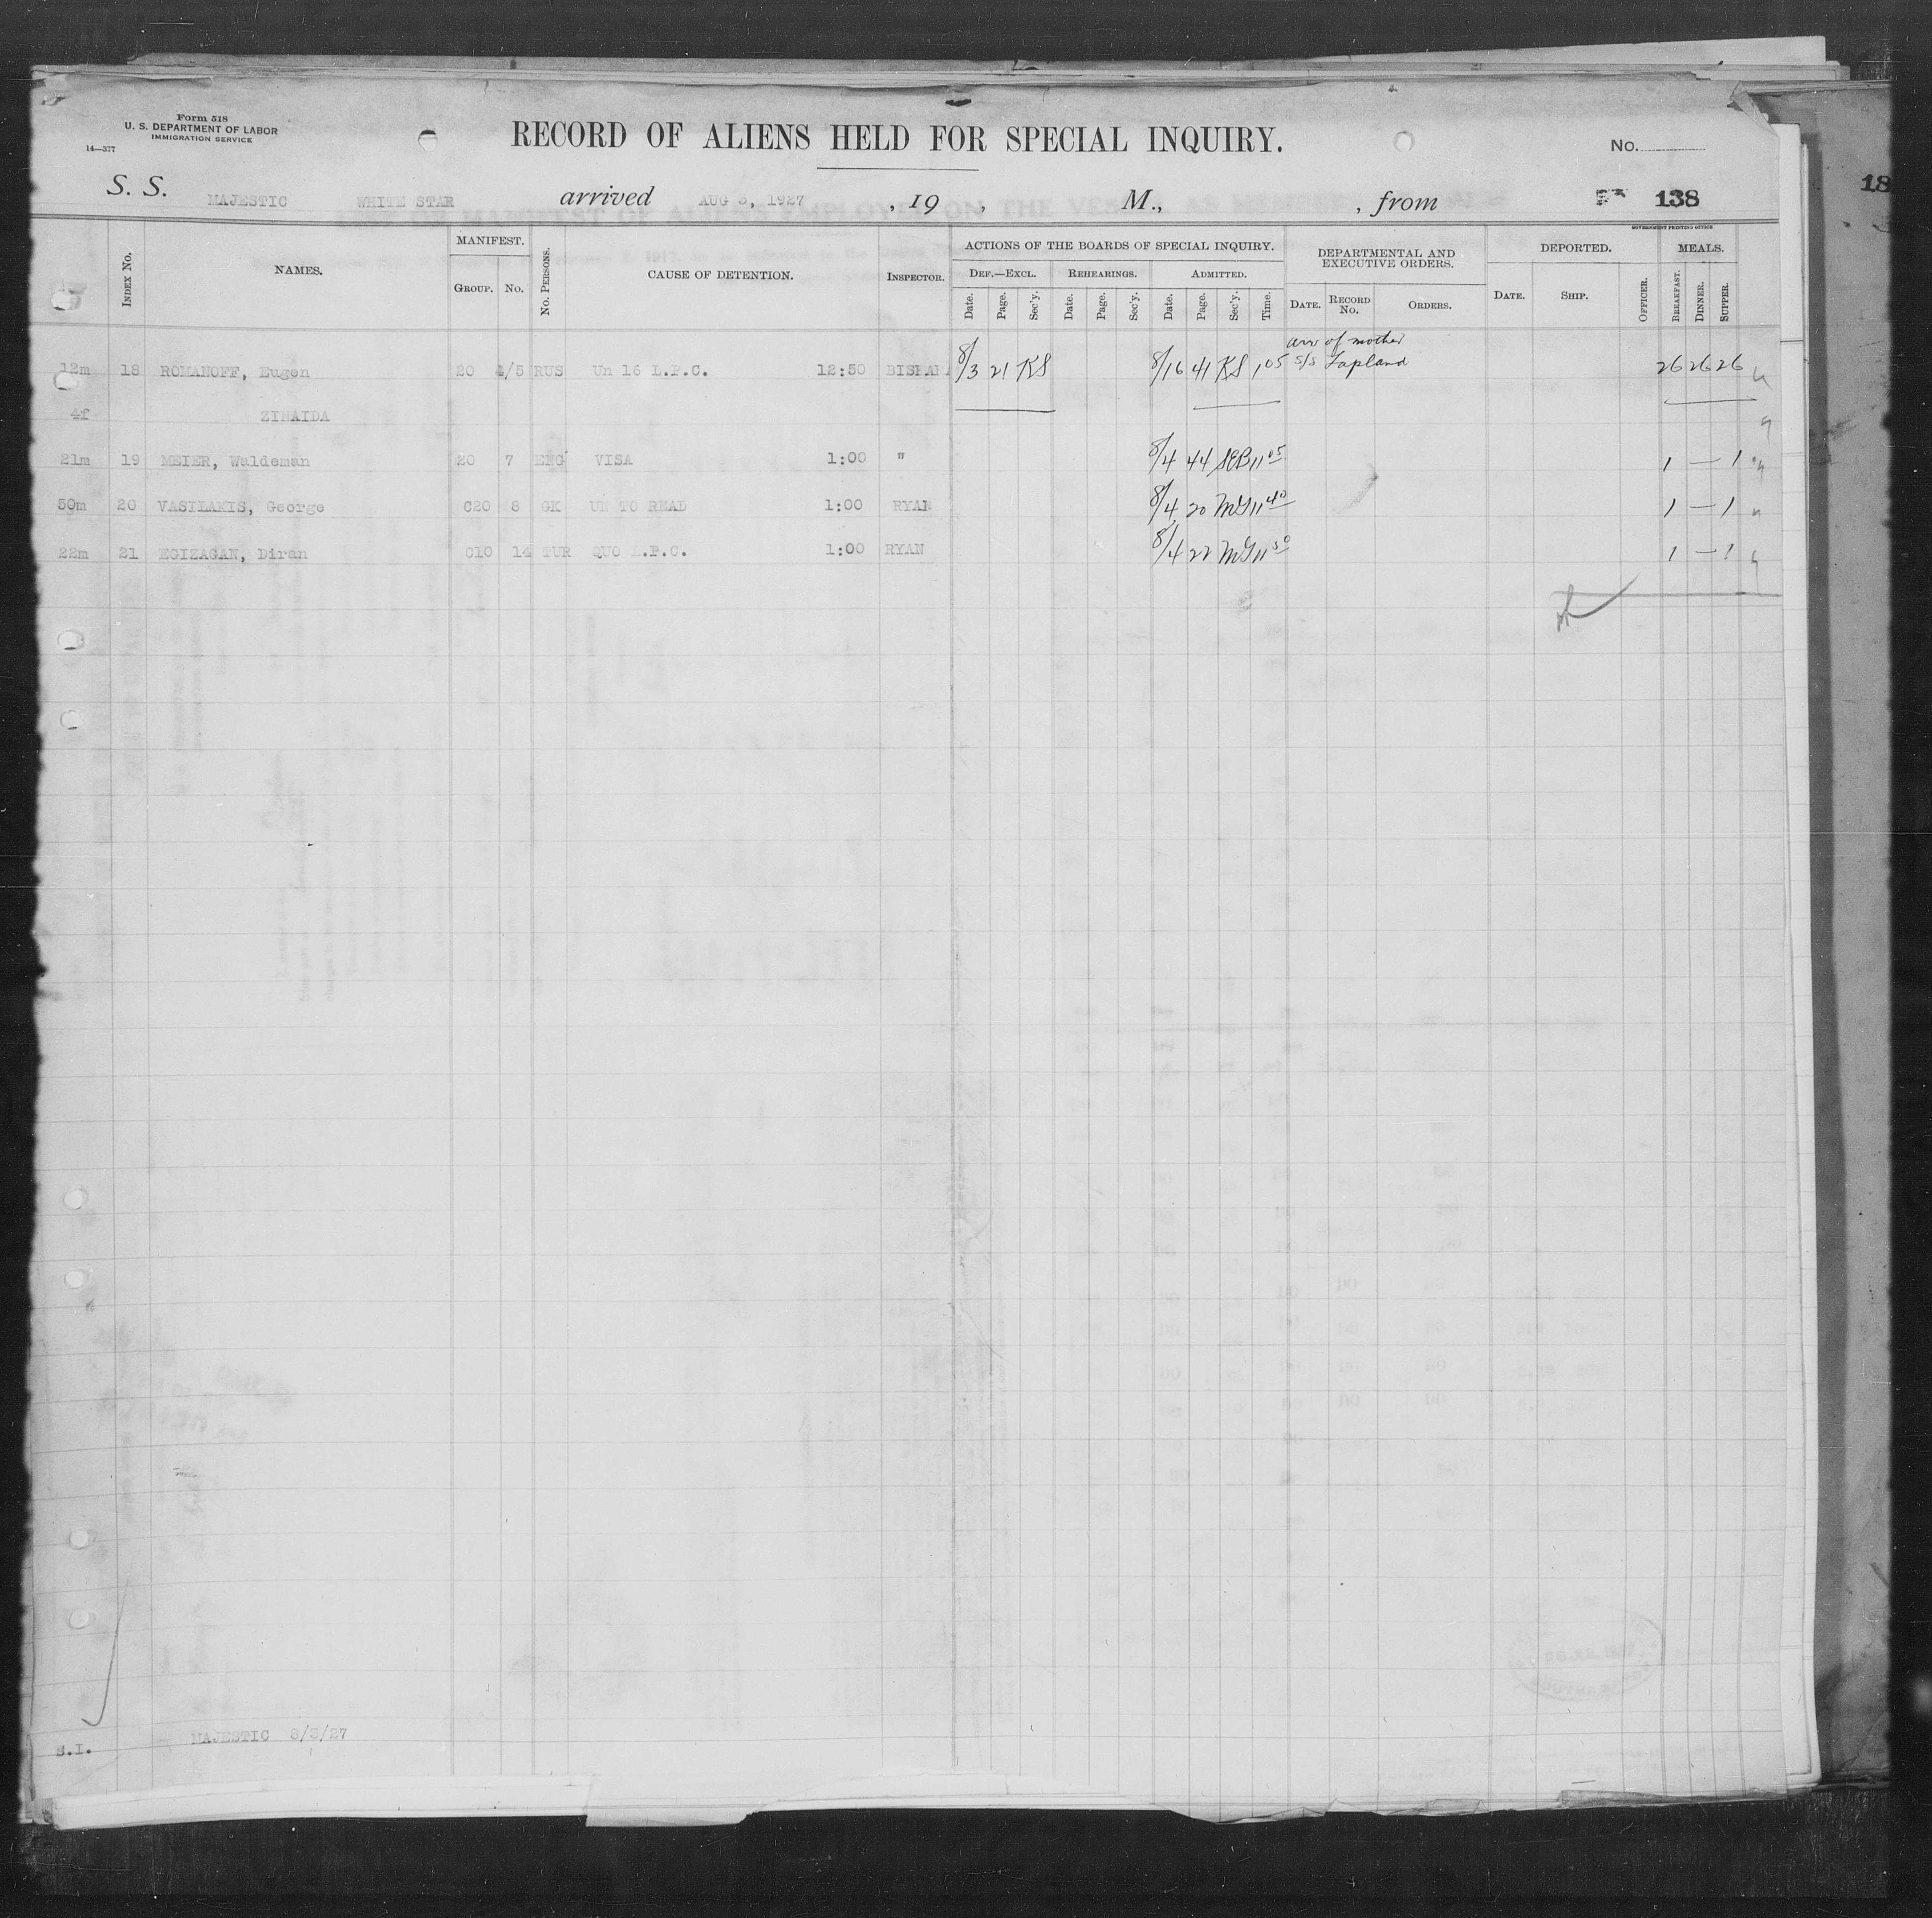 Form 518
U. S. DEPARTMENT OF LABOR
IMMIGRATION SERVICE
14—377
RECORD OF ALIENS HELD FOR SPECIAL INQUIRY.
No.
S. S. MAJESTIC WHITE STAR arrived AUG 3, 1927 , 19 , M., , from 138
18
GOVERNMENT PRINTING OFFICE
INDEX No. NAMES. MANIFEST. GROUP. No. No. PERSONS. CAUSE OF DETENTION. INSPECTOR. ACTIONS OF THE BOARDS OF SPECIAL INQUIRY. DEPARTMENTAL AND EXECUTIVE ORDERS. DEPORTED. MEALS.
DEF.—EXCL. REHEARINGS. ADMITTED.
Date. Page. Sec'y. Date. Page. Sec'y. Date. Page. Sec'y. Time. DATE. RECORD No. ORDERS. DATE. SHIP. OFFICER. BREAKFAST. DINNER. SUPPER.
arr of mother
12m 18 ROMANOFF, Eugen 20 4/5 RUS Un 16 L.P.C. 12:50 8/3 21 KS 8/16 41 KS 1 05 S/S Lapland 26 26 26
4f ZINAIDA
21m 19 MEIER, Waldeman 20 7 ENG VISA 1:00 " 8/4 44 SEB 11 05 1 — 1
50m 20 VASILAKIS, George C20 8 GK UN TO READ 1:00 RYAN 8/4 20 MG 11 40 1 — 1
22m 21 EGIZAGAN, Diran C10 14 TUR QUO L.P.C. 1:00 RYAN 8/4 22 MG 11 50 1 — 1
S.I. MAJESTIC 8/3/27